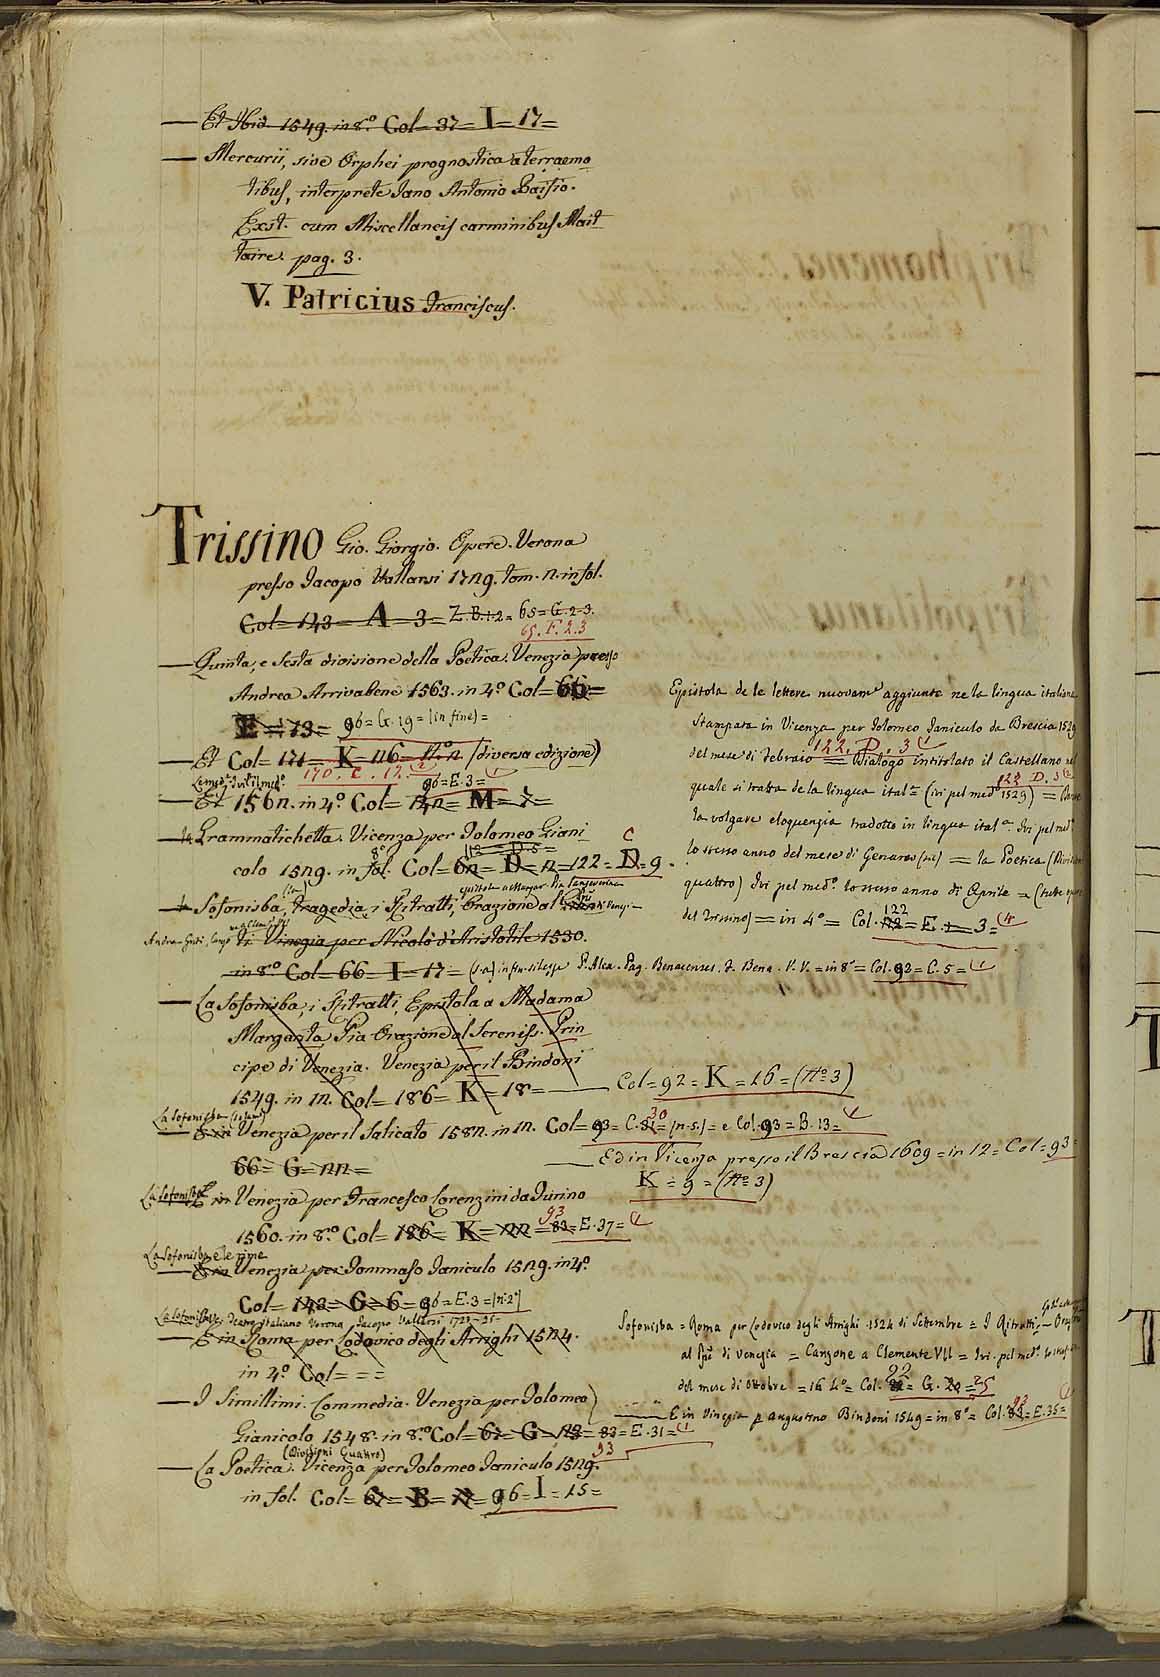 — Et Ibid. 1549. in 8.º Col= 37= I= 17=
— Mercurii, sive Orphei prognostica a terraemo
tibus, interprete Iano Antonio Baifio.
Exst. cum Miscellaneis carminibus Mait
taire. pag. 3.
V. Patricius Franciscus.
Trissino Gio. Giorgio. Opere. Verona
presso Iacopo Vallarsi 1729. tom. 2. in fol.
Col= 143= A= 3= Z.B.1.2= 65=G.2-3.
65. F. 2. 3
— Quinta, e Sesta divisione della Poetica. Venezia presso
Andrea Arrivabene 1563. in 4.º Col= 66=
E= 13= 96= G. 19= (in fine)=
— Et Col= 171= K= 26= N.º 2 (diversa edizione)
170. C. 12.
96=E.3=
— Et 1562. in 4.º Col= M= 7=
— Grammatichetta. Vicenza per Tolomeo Giani
colo 1529. in fol. Col= 62= D= 2= 122= D= 9.
8º
C
— Sofonisba, tragedia, i Ritratti, Orazione al
di Vinegia per Nicolò d'Aristotile 1530.
in 8.º Col= 66= I= 17= P. Alex. Pag. Benacenses. F. Bena. V. V. = in 8º= Col. 92= C. 5=
— La Sofonisba, i Ritratti, Epistola a Madama
Marganta Pia Orazione al Sereniss. Prin
cipe di Venezia. Venezia per il Bindoni
1549. in 12. Col= 186= K= 18= — Col= 92= K= 26= (Nº 3)
La Sofonisba
— E in Venezia per il Salicato 1582. in 12. Col= 93= C. 30= (n.s.)= e Col. 93= B. 13=
66= G= 22=
— Ed in Vicenza presso il Brescia 1609= in 12= Col= 93=
K= 9= (Nº 3)
La Sofonisba
E in Venezia per Francesco Lorenzini da Turino
1560. in 8.º Col= 186= K= 22= 83= E. 37=
93
La Sofonisba e le rime
— E in Venezia per Tommaso Ianiculo 1529. in 4º
Col= 143= G= 6= 96= E. 3= (n. 2º)
La Sofonisba, Teatro italiano Verona Jacopo Vallarsi 1728-25-
— E in Roma per Lodovico degli Arrighi 1524.
in 4.º Col= = =
— I Simillimi. Commedia. Venezia per Tolomeo
Gianicolo 1548. in 8.º Col= 67= G= 83= E. 31=
93
(Divisioni Quattro)
— La Poetica. Vicenza per Tolomeo Ianiculo 1529.
in fol. Col= 67= B= 96= I= 15=
Epistola de le lettere nuovamte aggiunte ne la lingua italiana
Stampata in Vicenza per Tolomeo Janiculo da Brescia 1529
122. D. 3
del mese di Febraio = Dialogo intitolato il Castellano nel
122 D. 3
quale si tratta de la lingua itala = (ivi pel medº 1529) =
la volgare eloquenzia tradotto in lingua itala. Ivi pel medº
lo stesso anno del mese di Genaro (sic) = la Poetica (Divisioni
quattro) Ivi pel medº lo stesso anno di Aprile = (tutte opere
del Trissino) = in 4º= Col. 122= E. 3=
Sofonisba = Roma per Lodovico degli Arrighi 1524 di Settembre = I Ritratti
di Venezia = Canzone a Clemente VII = Ivi. pel medº
del mese di Ottobre = in 4º= Col. 22= G. 25
— E in Vinegia p augustino Bindoni 1549= in 8º= Col. 93= E. 35=